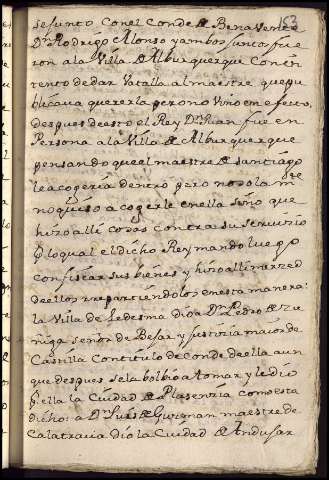 153
se junto con el Conde de Benavente
Dn Rodrigo Alonso y ambos juntos fue
ron a la Villa de Alburquerque con in
tento de dar vatalla al maestre que pu
blicava quererla pero no vino en efecto,
despues de esto el Rey Dn Juan fue en
Persona a la Villa de Alburquerque
pensando que el maestre de santiago
le acogeria dentro pero no sola mte
no quiso acogerle en ella sino que
hizo alli cosas contra su servizio
Por lo qual el dicho Rey mando luego
confiscar sus bienes y hizo alli merzed
de ellos rrepartiendolos en esta manera:
la Villa de Ledesma dio a Dn Pedro de Zu
ñiga señor de Bejar y justizia maior de
Castilla Con titulo de Conde de ella aun
que despues se la bolbio a tomar y le dio
Por ella la Ciudad de Plasenzia como esta
dicho: a Dn Luis de Guzman maestre de
Calatrava dio la Ciudad de Andujar